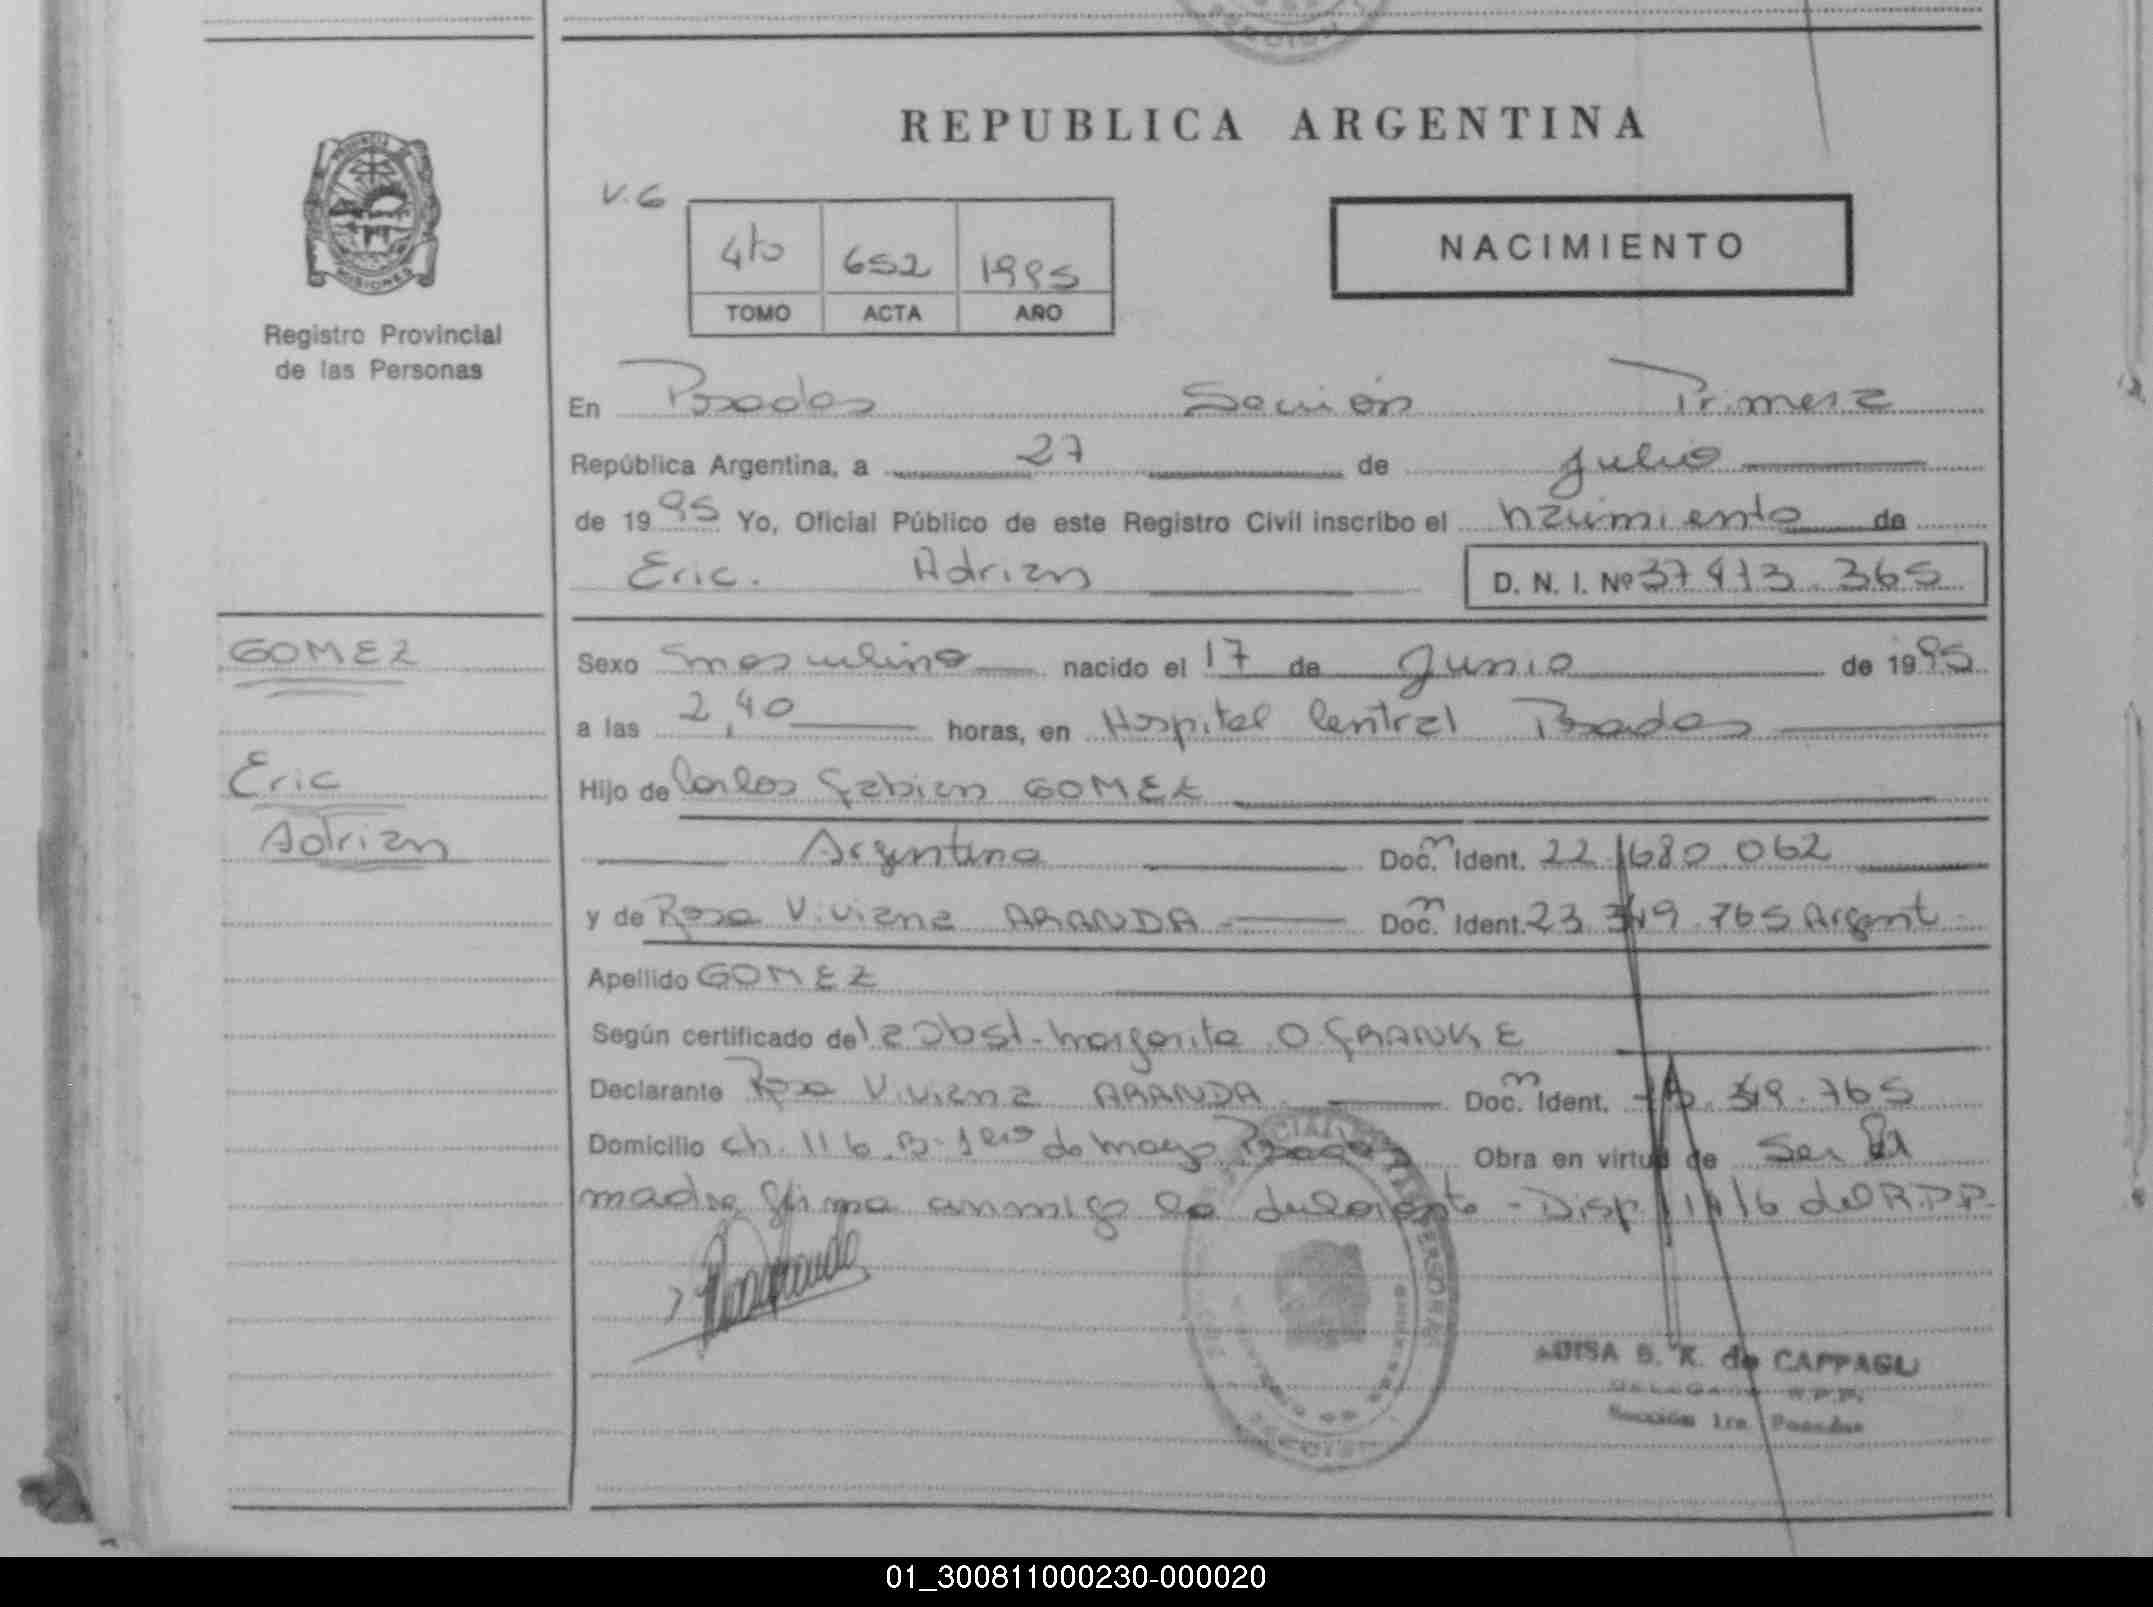 REPUBLICA ARGENTINA
V.6
4to 652 1995
TOMO ACTA AÑO
NACIMIENTO
MISIONES
Registro Provincial
de las Personas
En Posadas Sección Primera
República Argentina, a 27 de Julio
de 1995 Yo, Oficial Público de este Registro Civil inscribo el nacimiento de
Eric Adrian D. N. I. Nº 37 413.365
GOMEZ
Eric
Adrian
Sexo masculino nacido el 17 de Junio de 1995
a las 2,40 horas, en Hospital Central Posadas
Hijo de Carlos Fabian GOMEZ
Argentino Doc. Ident. 22.680.062
y de Rosa Viviana ARANDA Doc. Ident. 23 349.765 Argent
Apellido GOMEZ
Según certificado de la Obst. Margarita O FRANKE
Declarante Rosa Viviana ARANDA Doc. Ident. 349.765
Domicilio ch. 116 B. 1ero de mayo Posadas Obra en virtud de Ser la
madre firma conmigo la declarante - Disp 11/16 del R.P.P.
S. K. de CAPPAGLI
R.P.P.
Sección 1ra. Posadas
01_300811000230-000020